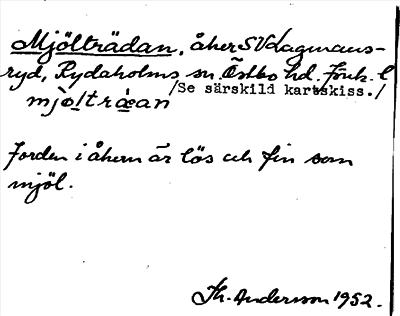 Mjölträdan, åker SV Lagmans-
ryd, Rydaholms sn. Östbo hd. Jönk. l
/Se särskild kartskiss./
mjö̀lträ̀an
Jorden i åkern är lös och fin som
mjöl.
Th. Andersson 1952.